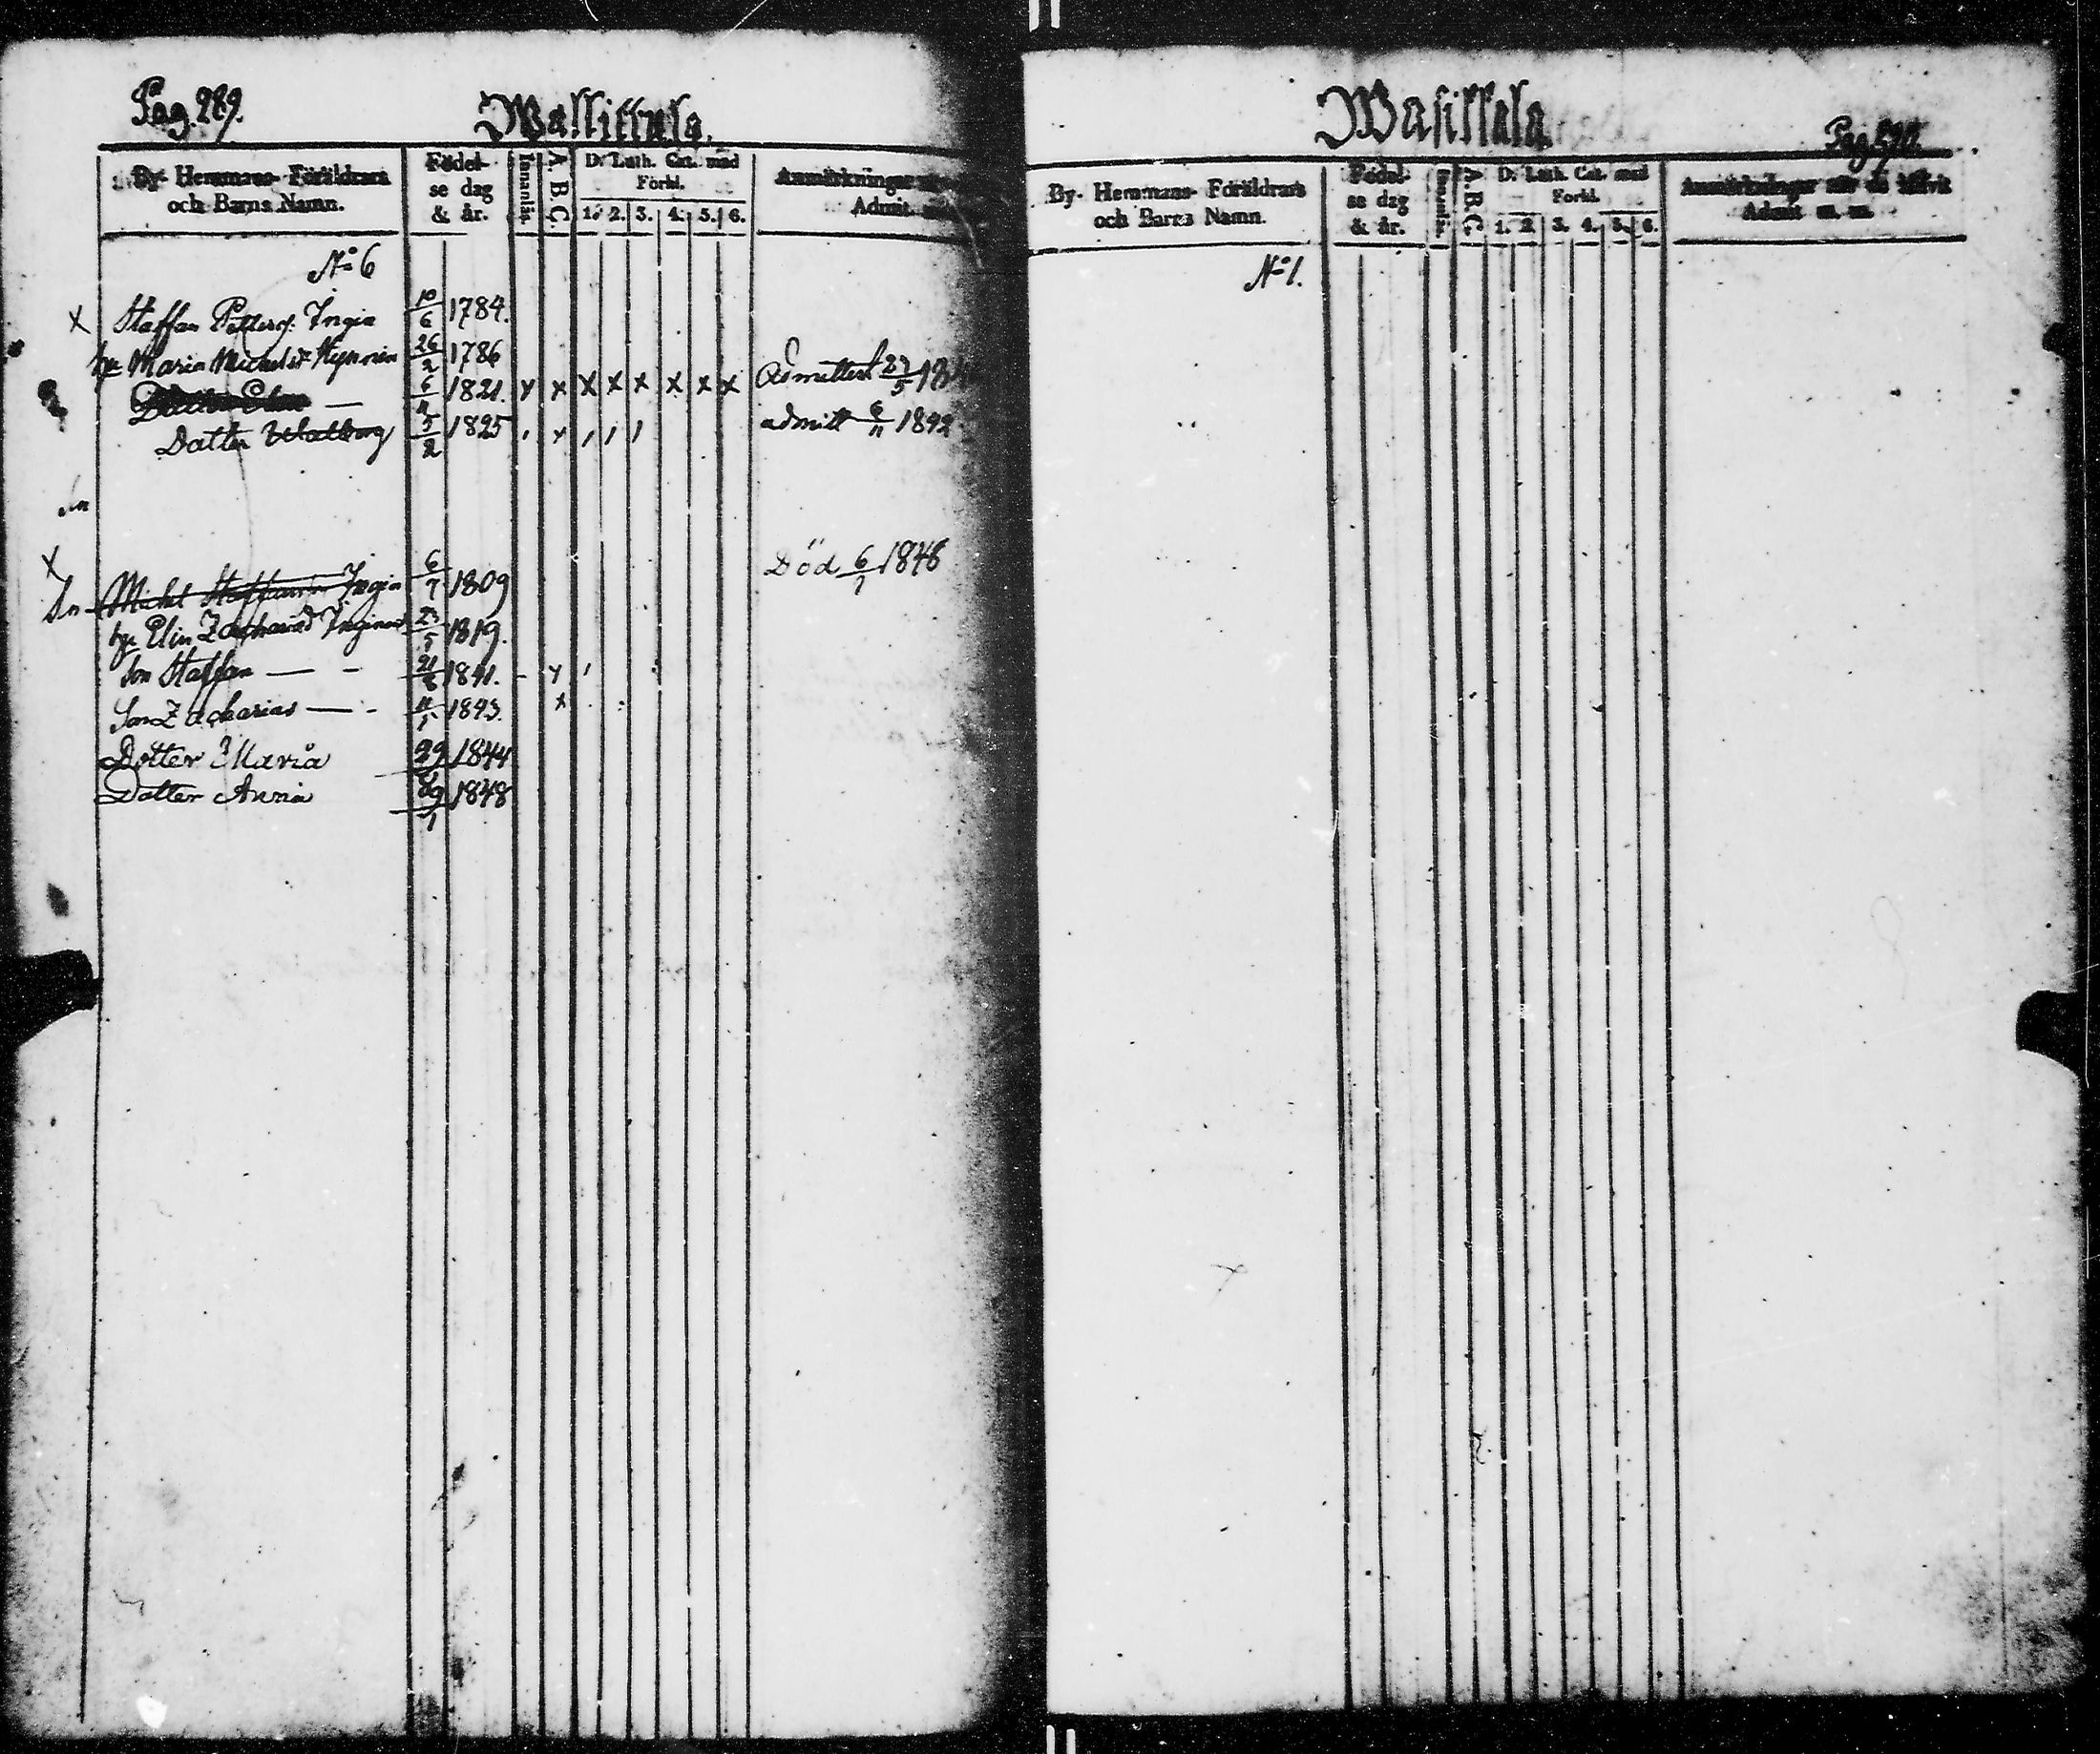 Pag. 289.
Wallittula.
By- Hemmans- Föräldrars
och Barns Namn.
Födel-
se dag
& år.
Innanläs.
A. B. C.
D. Luth. Cat. med
Förkl.
1. 2. 3. 4. 5. 6.
Anmärkningar
Admit.
No 6
X Staffan Petters. Ingin 10/6 1784.
hu Maria Michelsdr Hyninen 26/2 1786
Datter Elin — 6/11 1821. x x x x x x x x Admitterd 27/5
Datter Walborg 5/2 1825 admitt 6/11 1842
Sn
X
Sn Michel Staffansson Ingin 6/7 1809 Död 6/1 1848
hu Elin Zachariasd Inginen 23/5 1819.
Son Staffan — - 21/8 1841.
Son Zacharias — - 11/1 1843. x
Dotter Maria 29 1844
Dotter Anna 29/1 1848
Wasikkala
Pag 290.
By- Hemmans- Föräldrars
och Barns Namn.
Födel-
se dag
& år.
Innanläs.
A. B. C.
D. Luth. Cat. med
Förkl.
1. 2. 3. 4. 5. 6.
Anmärkningar när de blifvit
Admit m. m.
No 1.